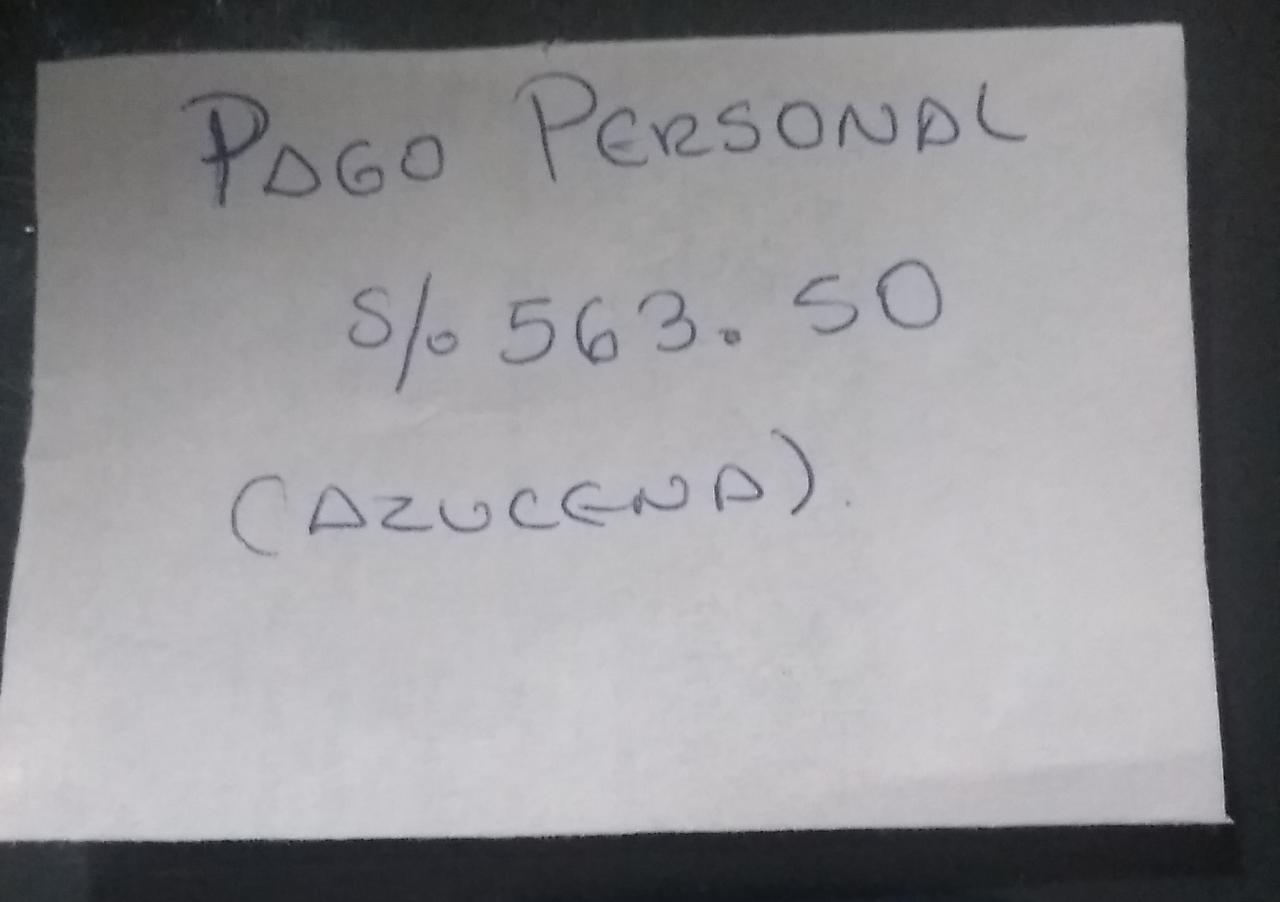 PAGO PERSONAL
S/. 563.50
(AZUCENA).